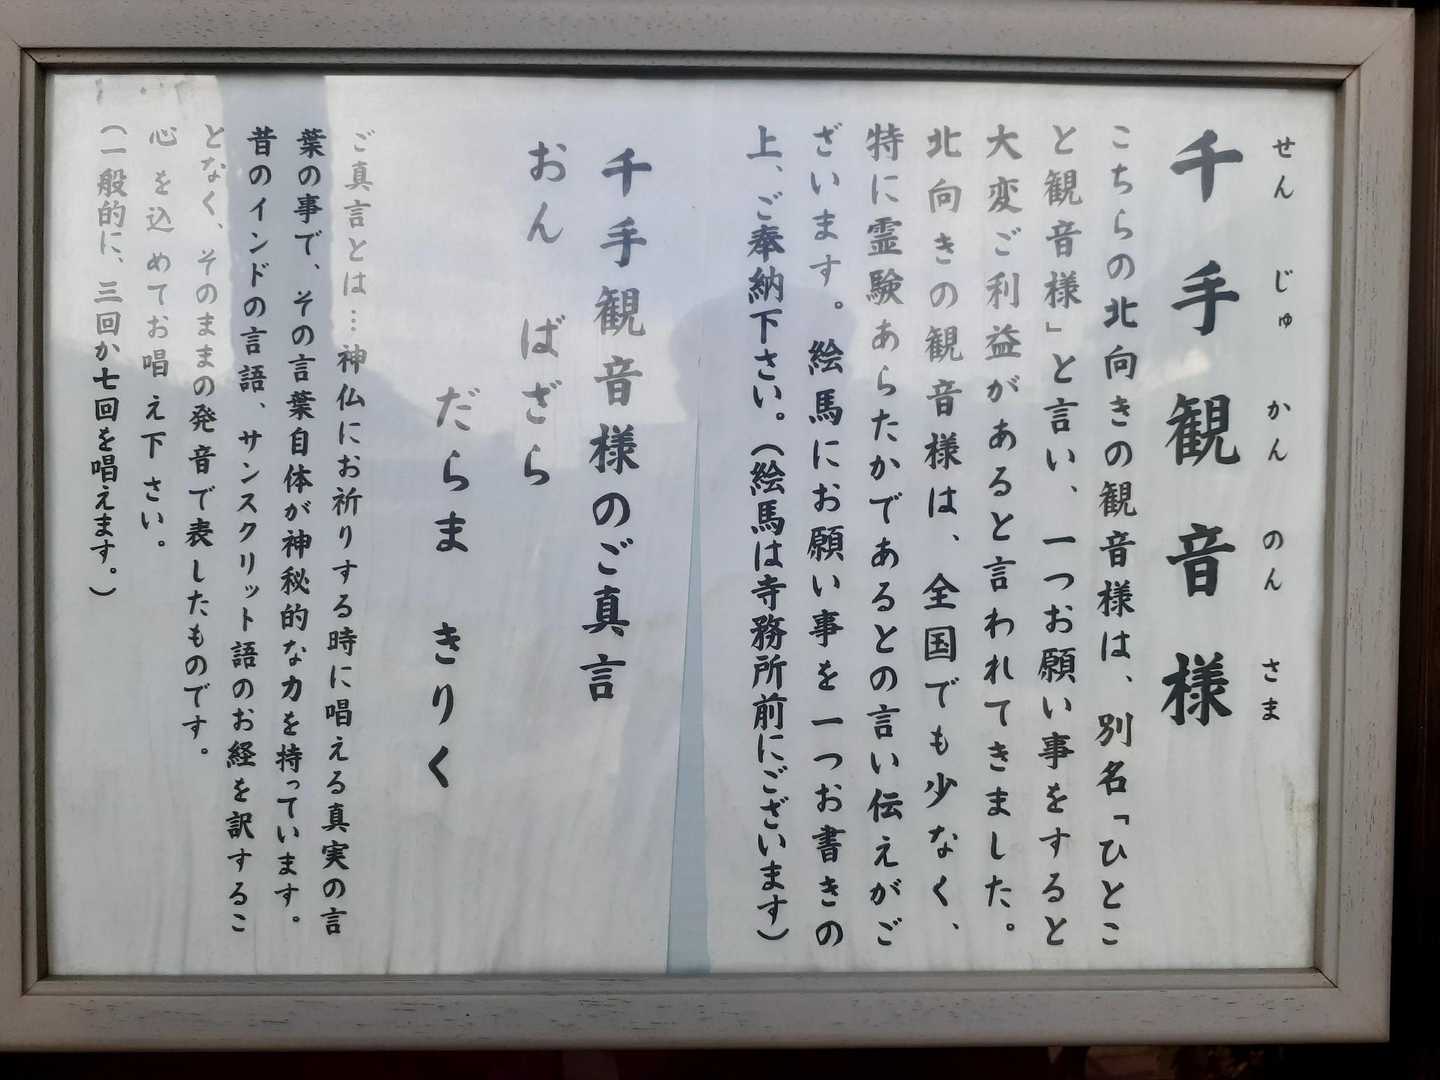 せんじゅかんのんさま
千手観音様
こちらの北向きの観音様は、別名「ひとこ
と観音様」と言い、一つお願い事をすると
大変ご利益があると言われてきました。
北向きの観音様は、全国でも少なく、
特に霊験あらたかであるとの言い伝えがご
ざいます。絵馬にお願い事を一つお書きの
上、ご奉納下さい。（絵馬は寺務所前にございます）
千手観音様のご真言
おん ばざら
だらま きりく
ご真言とは…神仏にお祈りする時に唱える真実の言
葉の事で、その言葉自体が神秘的な力を持っています。
昔のインドの言語、サンスクリット語のお経を訳するこ
となく、そのままの発音で表したものです。
心を込めてお唱え下さい。
（一般的に、三回か七回を唱えます。）